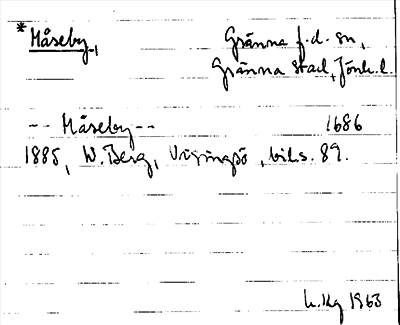 *Måseby, Gränna f.d. sn,
Gränna stad, Jönk. l.
-- Måseby -- 1686
1885, W. Berg, Visingsö, bih.s. 89.
1963